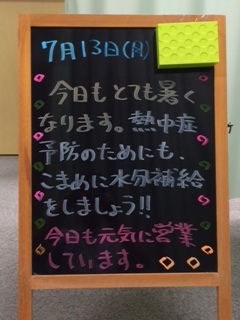 7月13日(月)
今日もとても暑く
なります。熱中症
予防のためにも、
こまめに水分補給
をしましょう!!
今日も元気に営業
しています。